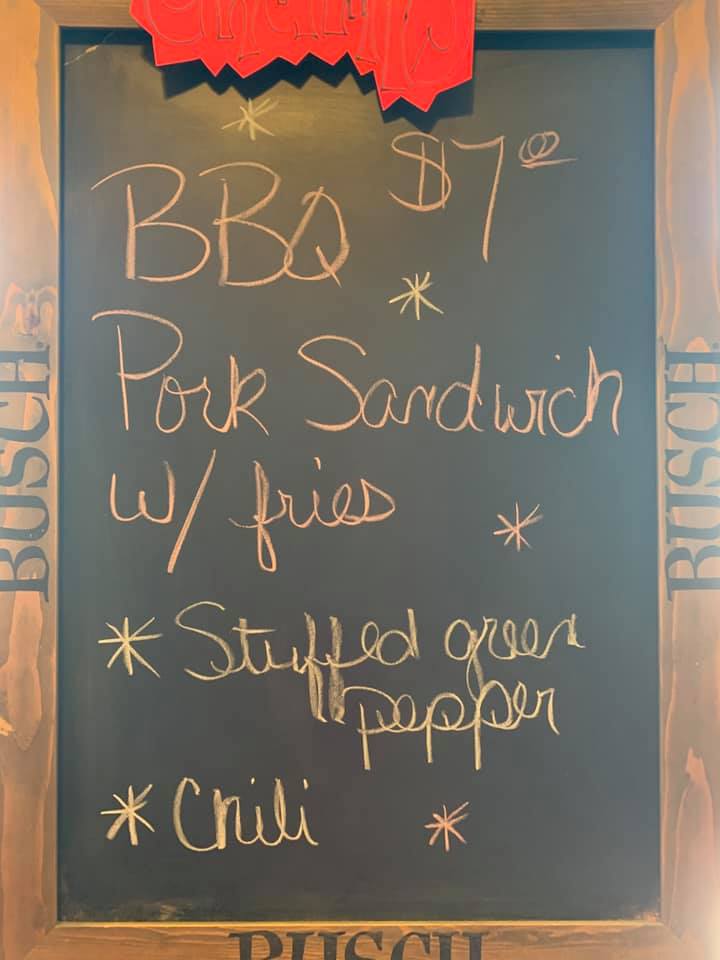 BBQ $7.00
Pork Sandwich
w/ fries
* Stuffed green
pepper
* Chili
BUSCH
BUSCH
BUSCH